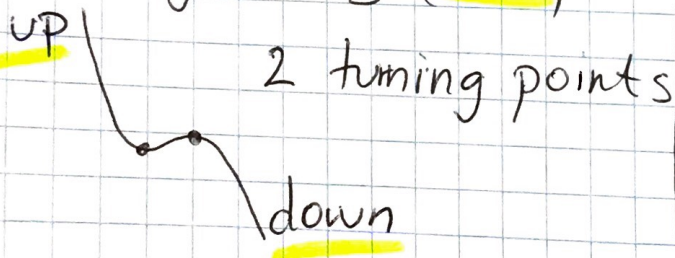 up
2 turning points
down